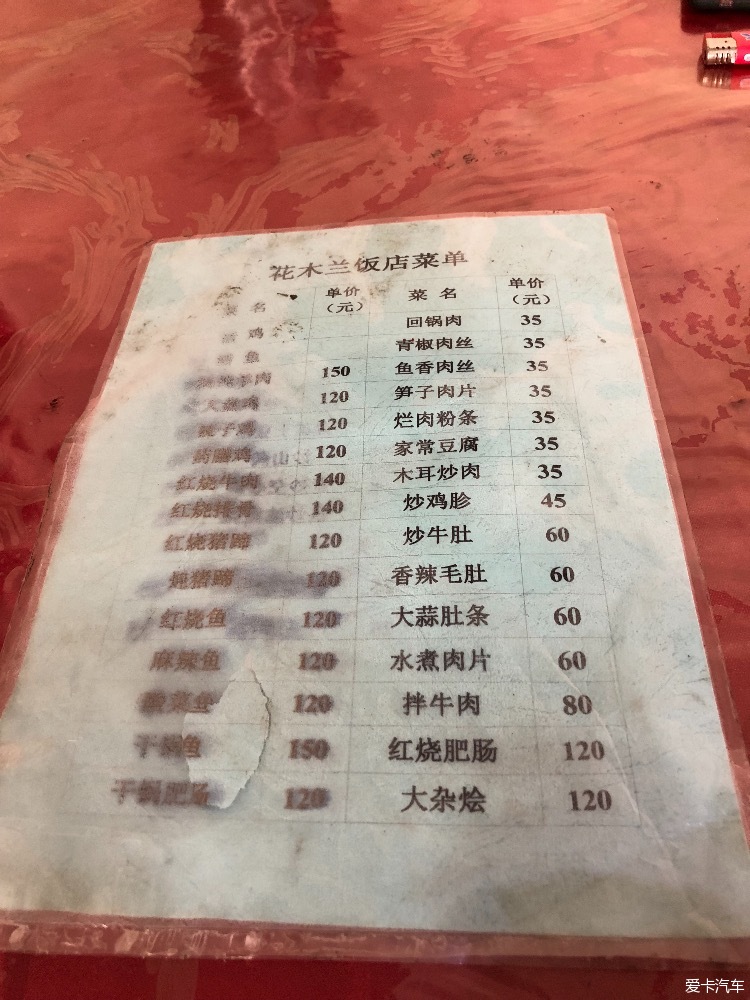 花木兰饭店菜单
名 单价（元） 菜 名 单价（元）
鸡 回锅肉 35
鱼 青椒肉丝 35
羊肉 150 鱼香肉丝 35
大盘鸡 120 笋子肉片 35
鸡 120 烂肉粉条 35
鸡 120 家常豆腐 35
红烧牛肉 140 木耳炒肉 35
红烧排骨 140 炒鸡胗 45
红烧猪蹄 120 炒牛肚 60
炖猪蹄 120 香辣毛肚 60
红烧鱼 120 大蒜肚条 60
麻辣鱼 120 水煮肉片 60
酸菜鱼 120 拌牛肉 80
干锅鱼 150 红烧肥肠 120
干锅肥肠 120 大杂烩 120
爱卡汽车